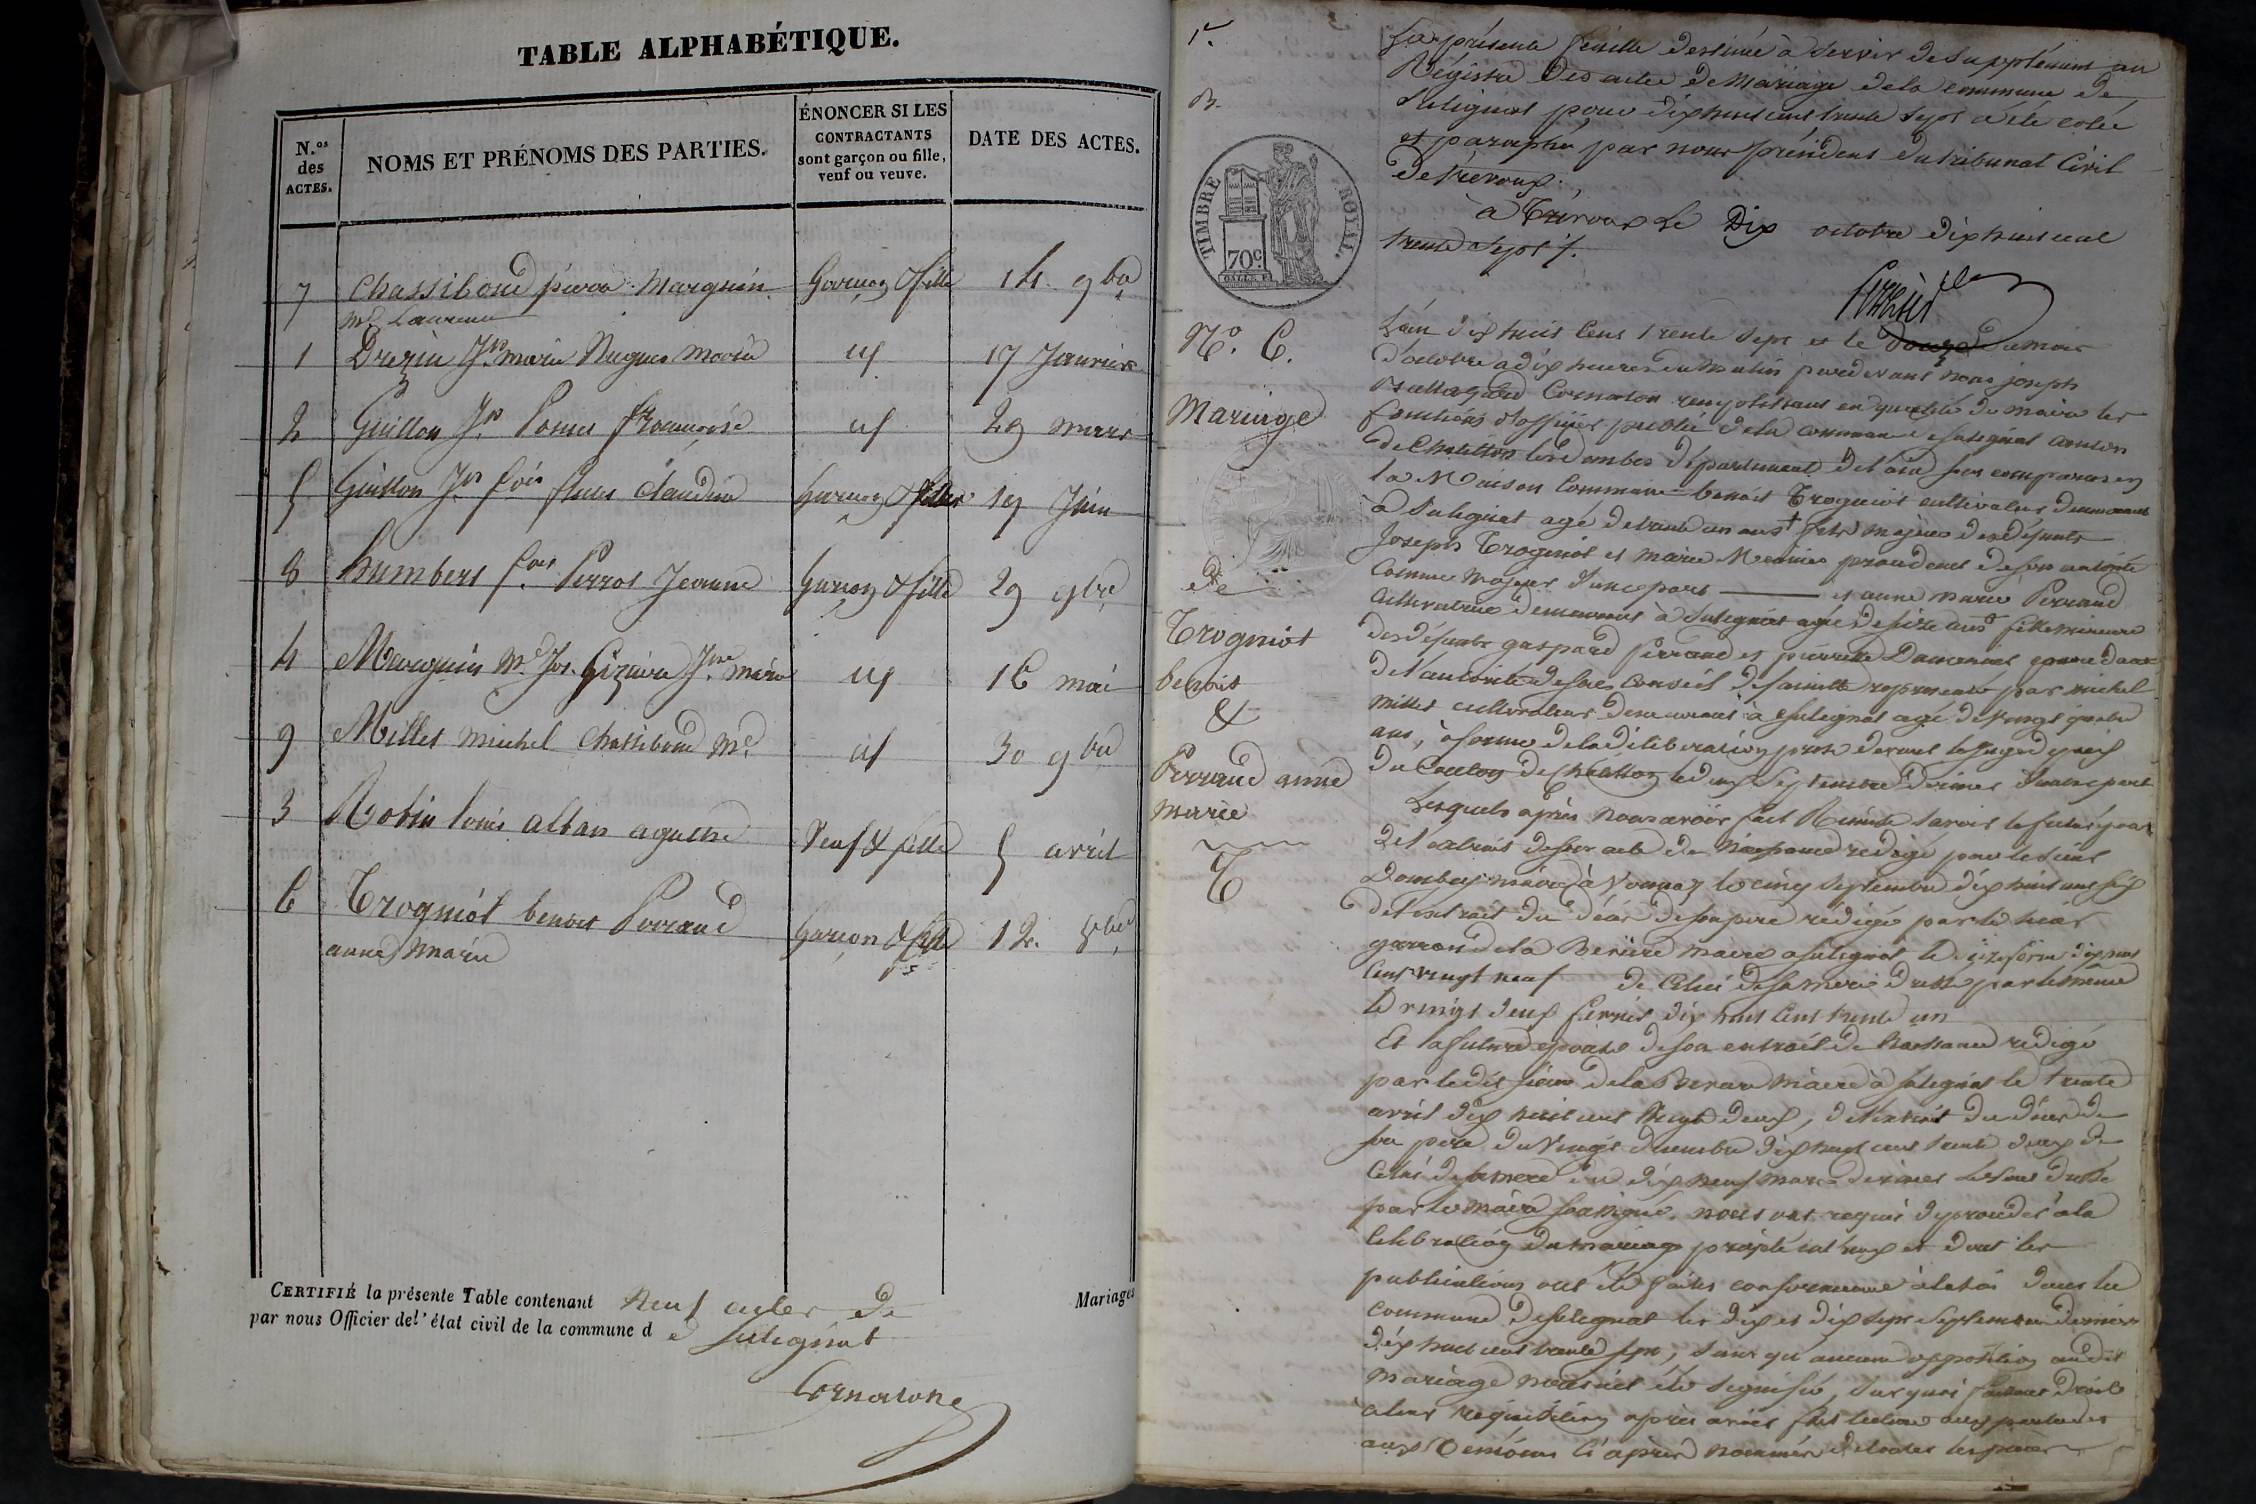 TABLE ALPHABÉTIQUE.
N.os des ACTES.
NOMS ET PRÉNOMS DES PARTIES.
ÉNONCER SI LES
CONTRACTANTS
sont garçon ou fille,
veuf ou veuve.
DATE DES ACTES.
7 Chassiboud pierre Marguin Garçon & fille 14 9bre
1 Drezin Jn marie Nugues 17 Janvier
2 Guillon Jn 29 mars
5 Guillon Jn fois claudine Garçon & fille 19 Juin
8 humbert fois Perros Jeanne Garçon & fille 29 9bre
4 Marguin 16 mai
9 Millet michel Chassiboud 30 9bre
3 Robin louis alban agathe Veuf & fille 5 avril
6 Trogniot benoit Perraud Garçon & fille 12 8bre
anne marie
CERTIFIÉ la présente Table contenant neuf actes de Mariages
par nous Officier de l'état civil de la commune d e Sulignat
Cornaton
1er
La présente feuille destinée à servir de supplément au
Régistre des actes de Mariage de la commune de
Sulignat pour dix huit cent trente sept a été cotée
et paraphée par nous président du tribunal Civil
de Trévoux.
à Trévoux Le Dix octobre dix huit cent
trente sept
TIMBRE ROYAL
70c
No. 6.
Mariage
de
Trogniot
benoit
&
Perraud anne
marie
L'an dix huit Cent trente sept et le douze du mois
d'octobre a dix heures du matin pardevant nous joseph
Cornaton remplissant en qualité de maire les
fonctions d'officier public de la commune de Sulignat canton
de Chatillon les dombes département de l'ain sont comparus en
la Maison Commune benoit Trogniot cultivateur demeurant
à Sulignat agé de trente un ans fils majeur des défunts
Joseph Trogniot et marie procedant de son autorité
Comme Majeur d'une part et anne marie Perraud
Cultivatrice demeurant à Sulignat agée de seize ans fille mineure
des défunts gaspard Perraud et pierrette
de l'autorité de son conseil de famille représenté par michel
millet cultivateur demeurant à Sulignat agé de vingt quatre
ans, à forme de la délibération prise devant le juge de paix
du Canton de Chatillon le deux septembre dernier d'autre part
Lesquels après nous avoir fait Remise savoir le futur époux
de l'extrait de son acte de naissance rédigé par le sieur
maire à Vonnas le cinq septembre dix huit cent six
de l'extrait du décès de son père rédigé par le sieur
de la maire a Sulignat le dix huit
Cent vingt neuf de Celui de sa mere dressé par le même
le vingt deux février dix huit Cent trente un
Et la future epouse de son extrait de Naissance rédigé
par le dit sieur de la maire à Sulignat le trente
avril dix huit cent vingt deux, de l'extrait du décès de
son pere du vingt décembre dix huit cent trente deux de
Celui de sa mere du dix neuf mars dernier dressé
par le maire soussigné. nous ont requis de proceder à la
Célébration du mariage projeté entr'eux et dont les
publications ont été faites conformement à la loi dans la
commune de Sulignat les dix et dix sept Septembre dernier
dix huit cent trente sept, sans qu'aucune opposition audit
mariage nous ait été signifiée, sur quoi faisant droit
à leur requisition après avoir fait lecture aux parties et
aux temoins ci après nommés de toutes les pieces